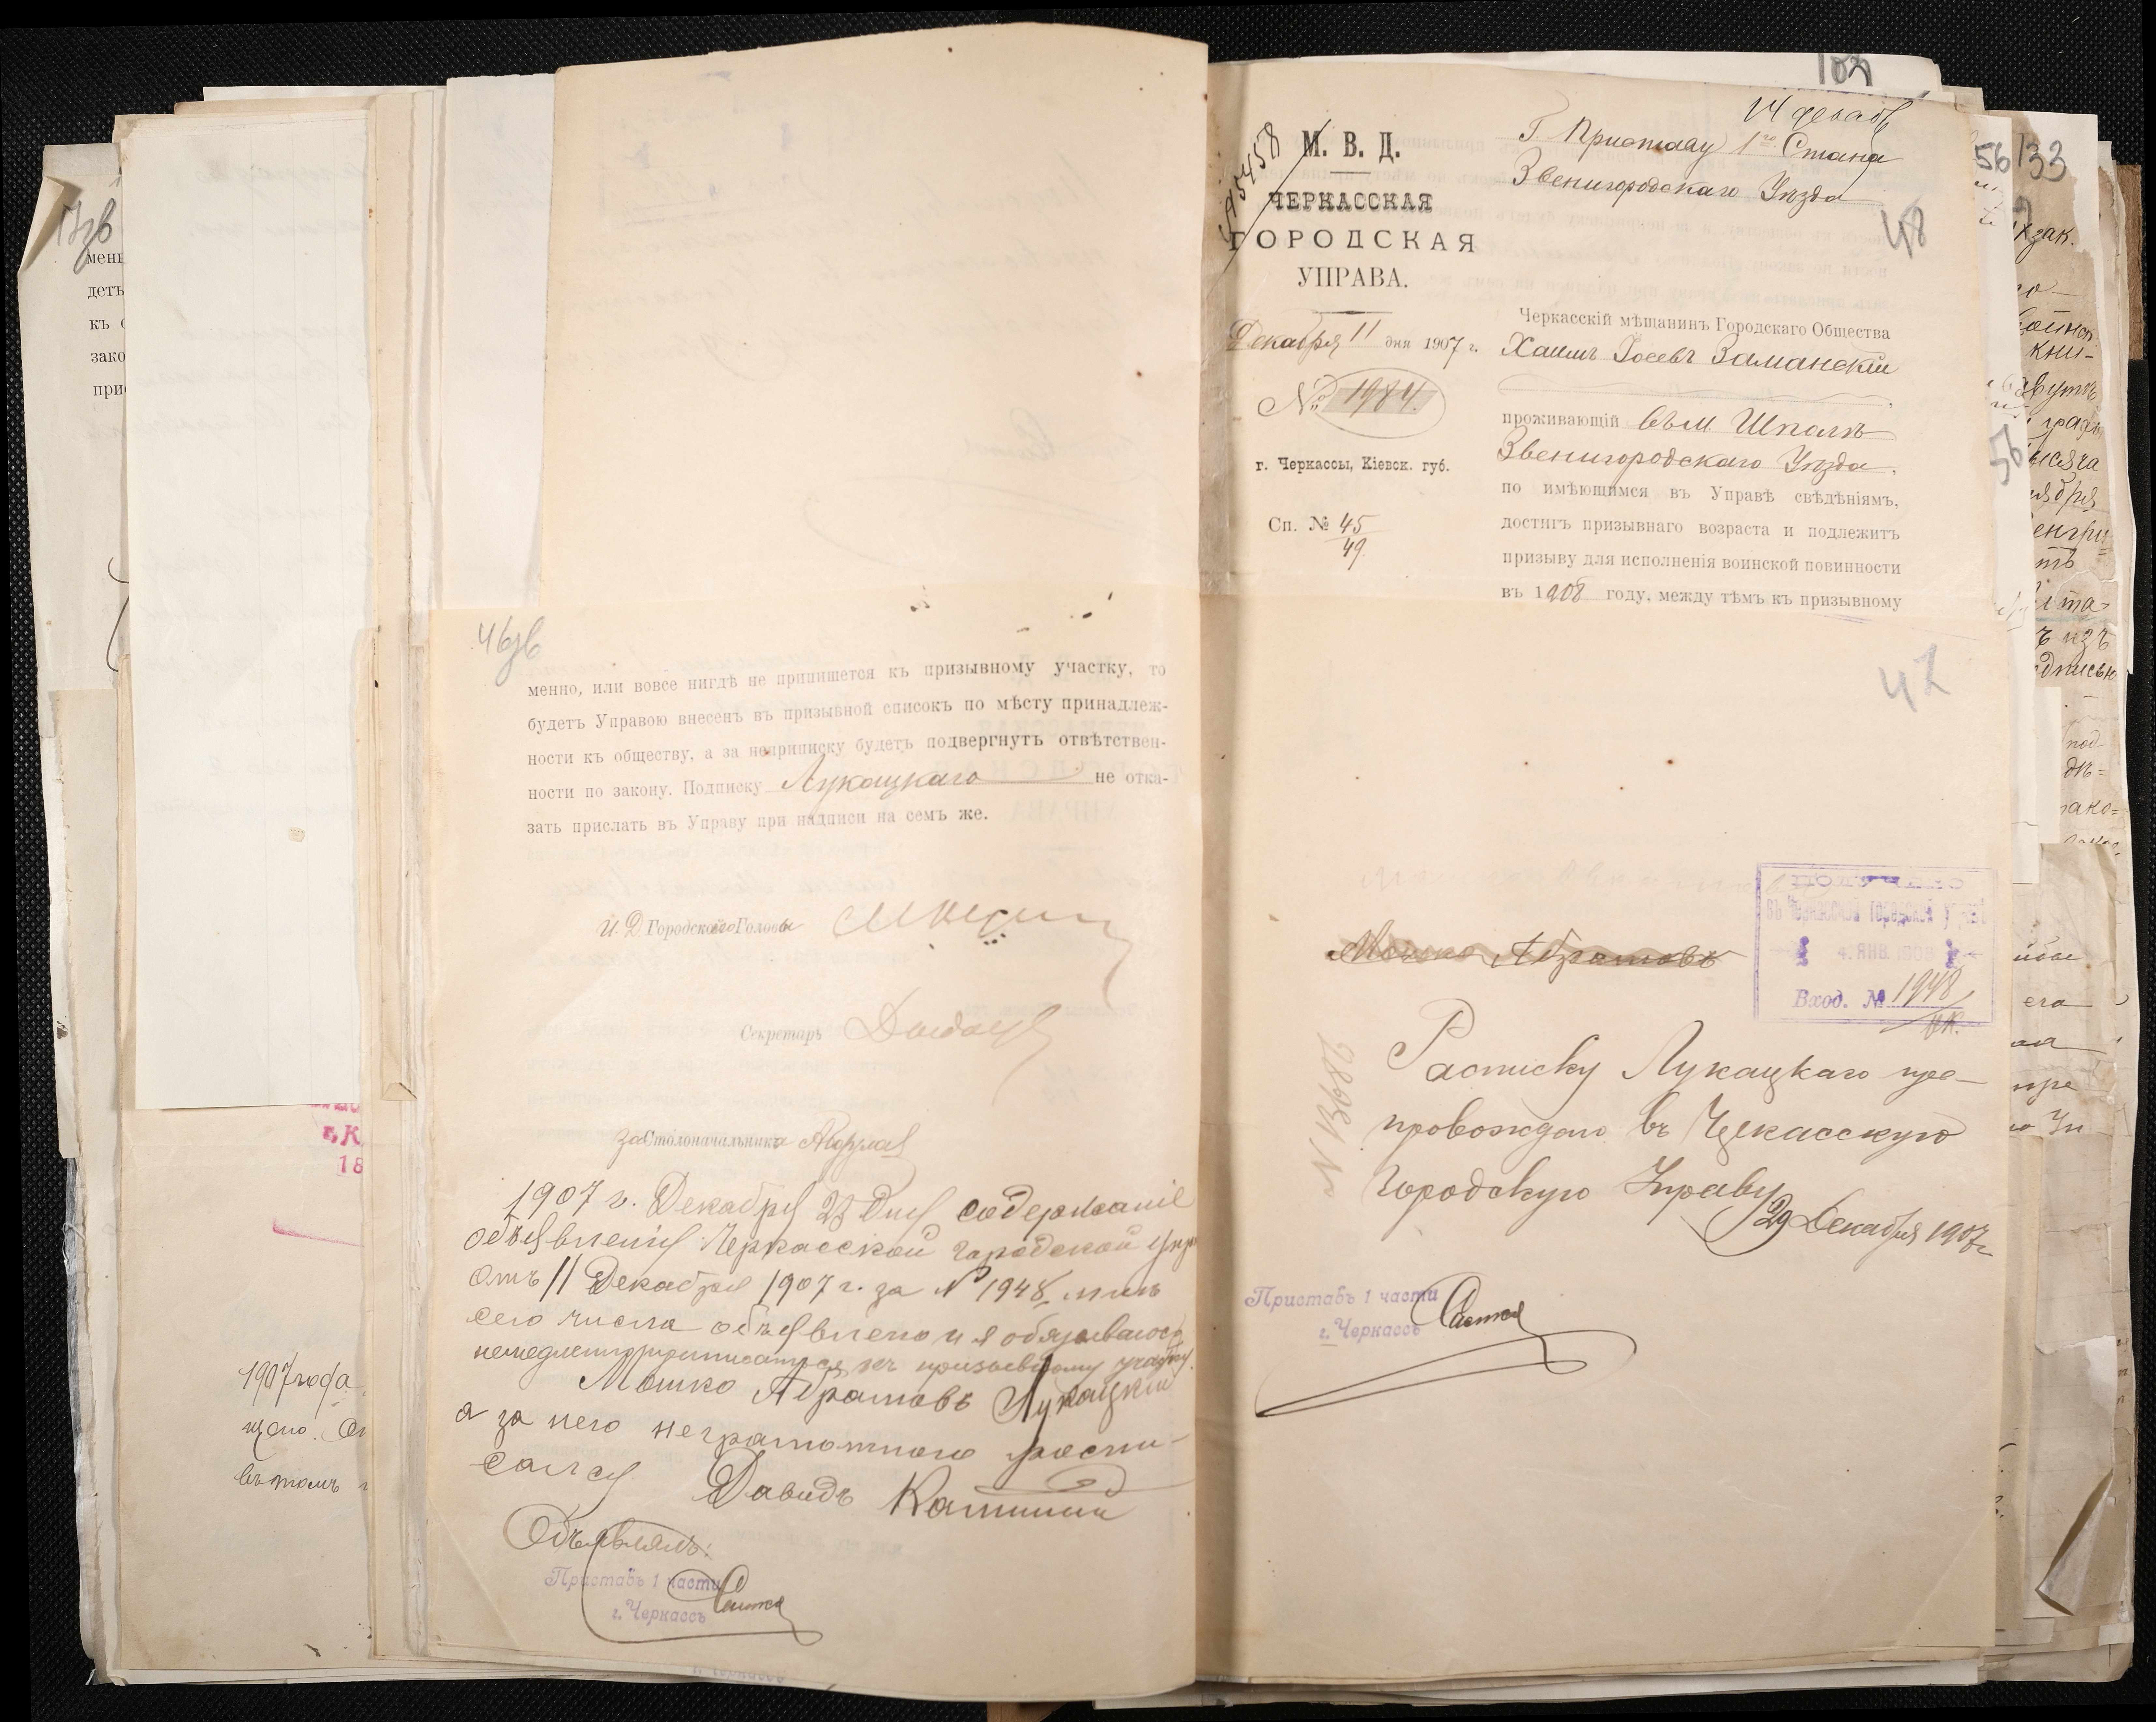 46зв
менно, или вовсе нигдѣ не припишется къ призывному участку, то
будетъ Управою внесенъ въ призывной списокъ по мѣсту принадлеж-
ности къ обществу, а за неприписку будетъ подвергнутъ отвѣтствен-
ности по закону. Подписку Лукацкаго не отка-
зать прислать въ Управу при надписи на семъ же.
И. Д. Городского Головы
Секретарь
за Столоначальника
1907 г. Декабря 23 Дня содержаніе
объявленія Черкасской городской упр
отъ 11 Декабря 1907 г. за № 1948, мнѣ
сего числа объявлено и я обязываюсь
немедленно приписаться къ призывному участку.
Мошко Абрамовъ Лукацкій
а за него неграмотного роспи-
сался Давидъ
Объявлялъ:
Приставъ 1 части
г. Черкассъ
1907 года
въ томъ
мен
детъ
къ
зако
при
183
14 декаб
Г. Приставу 1го Стана
Звенигородскаго Уѣзда
48
М. В. Д.
ЧЕРКАССКАЯ
ГОРОДСКАЯ
УПРАВА.
Декабря 11 дня 1907 г.
№ 1984.
г. Черкассы, Кіевск. губ.
Сп. № 45
49
Черкасскій мѣщанинъ Городскаго Общества
Хаимъ Іосевъ Заманскій
проживающій въ м. Шполѣ
Звенигородскаго Уѣзда.
по имѣющимся въ Управѣ свѣдѣніямъ,
достигъ призывнаго возраста и подлежитъ
призыву для исполненія воинской повинности
въ 1908 году, между тѣмъ къ призывному
47
ПОЛУЧЕНО
въ Черкасской Городской Управѣ
4. ЯНВ. 1908
Вход. № 1948
Мошко Абрамовъ
№ 13686
Расписку Лукацкаго пре-
провождаю въ Черкасскую
Городскую Управу
29 Декабря 1907 г.
Приставъ 1 части
г. Черкассъ
56
133